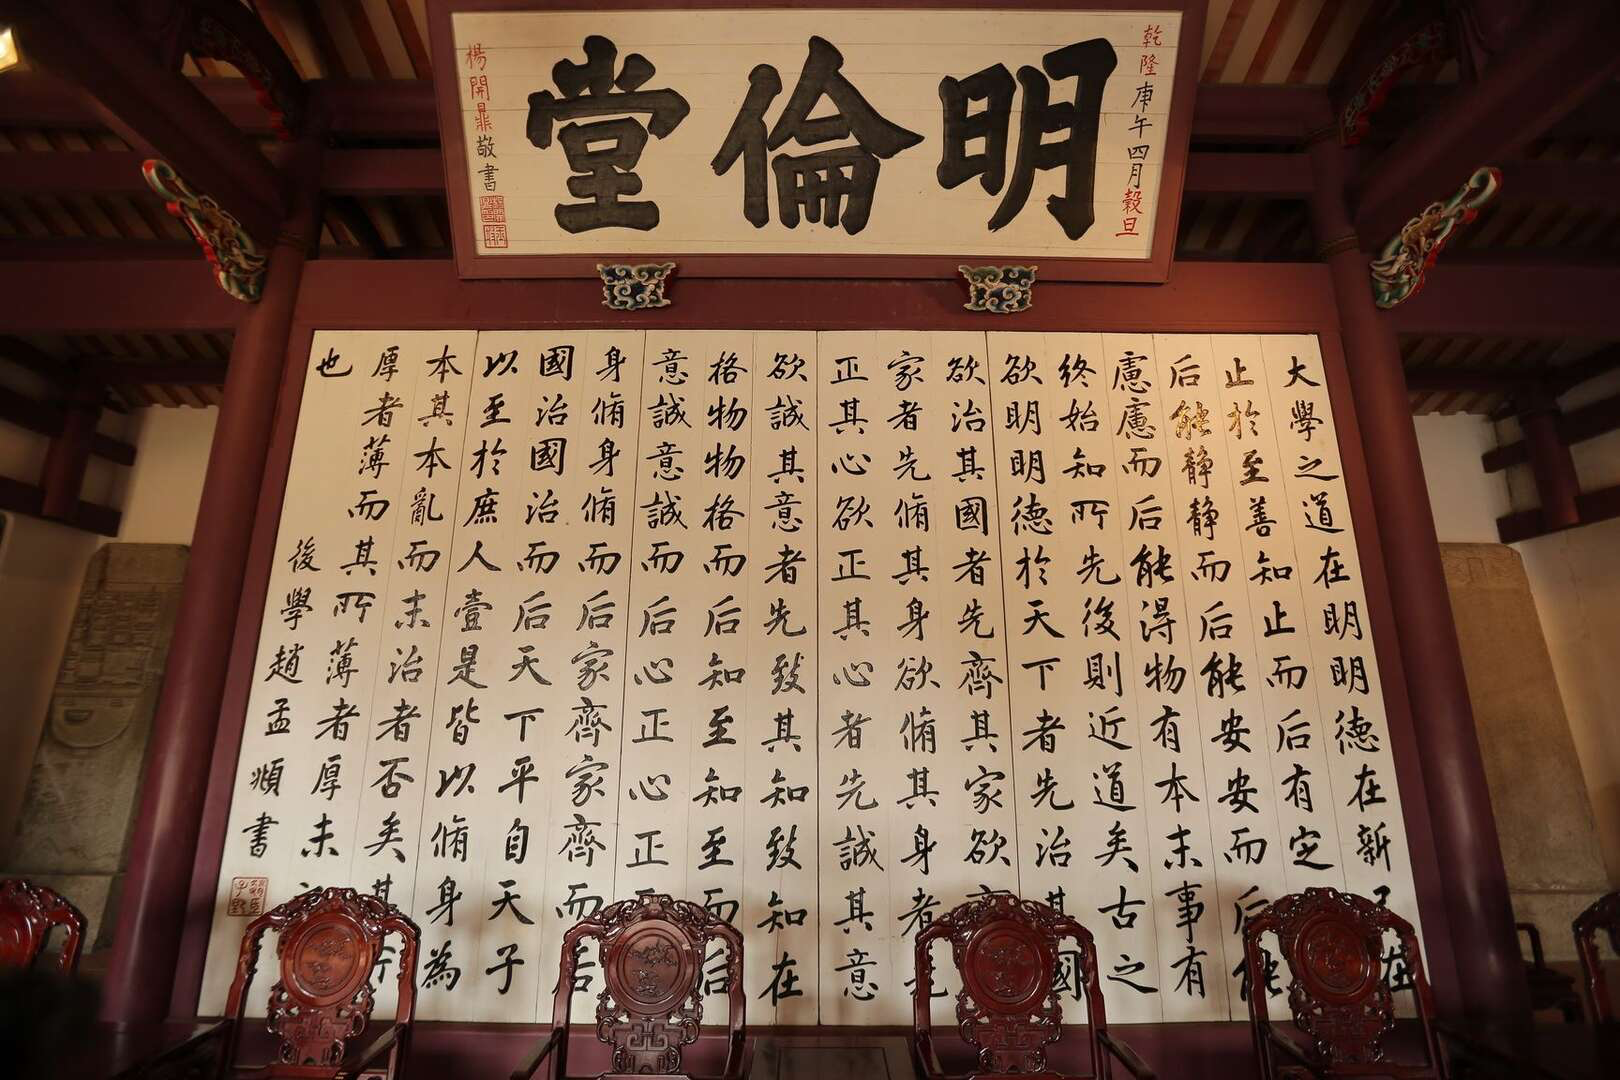 乾隆庚午四月穀旦
明倫堂
楊開鼎敬書
大學之道在明明德在新民在
止於至善知止而后有定
后能靜靜而后能安安而后能
慮慮而后能得物有本末事有
終始知所先後則近道矣古之
欲明明德於天下者先治其國
欲治其國者先齊其家欲齊
家者先脩其身欲脩其身者先
正其心欲正其心者先誠其意
欲誠其意者先致其知致知在
格物物格而后知至知至而后
意誠意誠而后心正心正而
身脩身脩而后家齊家齊而后
國治國治而后天下平自天子
以至於庶人壹是皆以脩身為
本其本亂而末治者否矣其所
厚者薄而其所薄者厚未
也
後學趙孟頫書